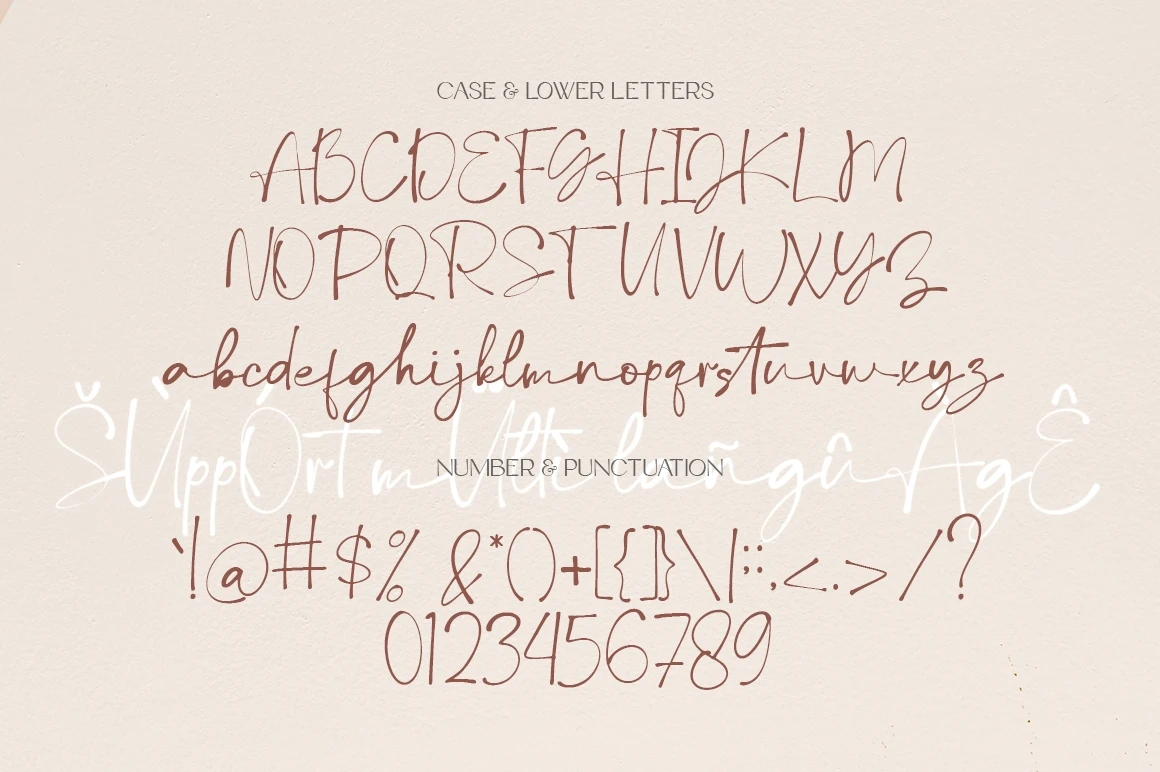 CASE & LOWER LETTERS
ABCDEFGHIJKLM
NOPQRSTUVWXYZ
abcdefghijklmnopqrstuvwxyz
ŠÙppÓrT mÜlti lañgû ÀgÊ
NUMBER & PUNCTUATION
`!@#$% &*()+[{]}\|:;,<.>/?
0123456789